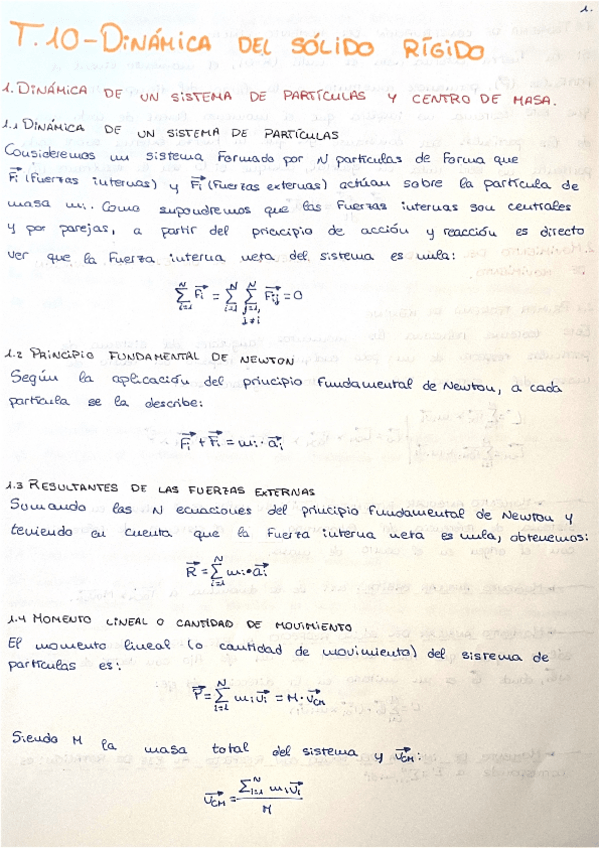 1.
T.10-DINÁMICA DEL SÓLIDO RÍGIDO
1. DINÁMICA DE UN SISTEMA DE PARTÍCULAS Y CENTRO DE MASA.
1.1 DINÁMICA DE UN SISTEMA DE PARTÍCULAS
Consideremos un sistema formado por N partículas de forma que
F⃗i (fuerzas internas) y F⃗i (fuerzas externas) actúan sobre la partícula de
masa mi. Como supondremos que las fuerzas internas son centrales
y por parejas, a partir del principio de acción y reacción es directo
ver que la fuerza interna neta del sistema es nula:
∑_{i=1}^{N} F⃗i = ∑_{i=1}^{N} ∑_{j=1, j≠i}^{N} F⃗ij = 0
1.2 PRINCIPIO FUNDAMENTAL DE NEWTON
Según la aplicación del principio fundamental de Newton, a cada
partícula se la describe:
F⃗i + F⃗i = mi · a⃗i
1.3 RESULTANTES DE LAS FUERZAS EXTERNAS
Sumando las N ecuaciones del principio fundamental de Newton y
teniendo en cuenta que la fuerza interna neta es nula, obtenemos:
R⃗ = ∑_{i=1}^{N} mi · a⃗i
1.4 MOMENTO LINEAL O CANTIDAD DE MOVIMIENTO
El momento lineal (o cantidad de movimiento) del sistema de
partículas es:
P⃗ = ∑_{i=1}^{N} mi v⃗i = M · v⃗CM
Siendo M la masa total del sistema y v⃗CM:
v⃗CM = ∑_{i=1}^{N} mi v⃗i / M